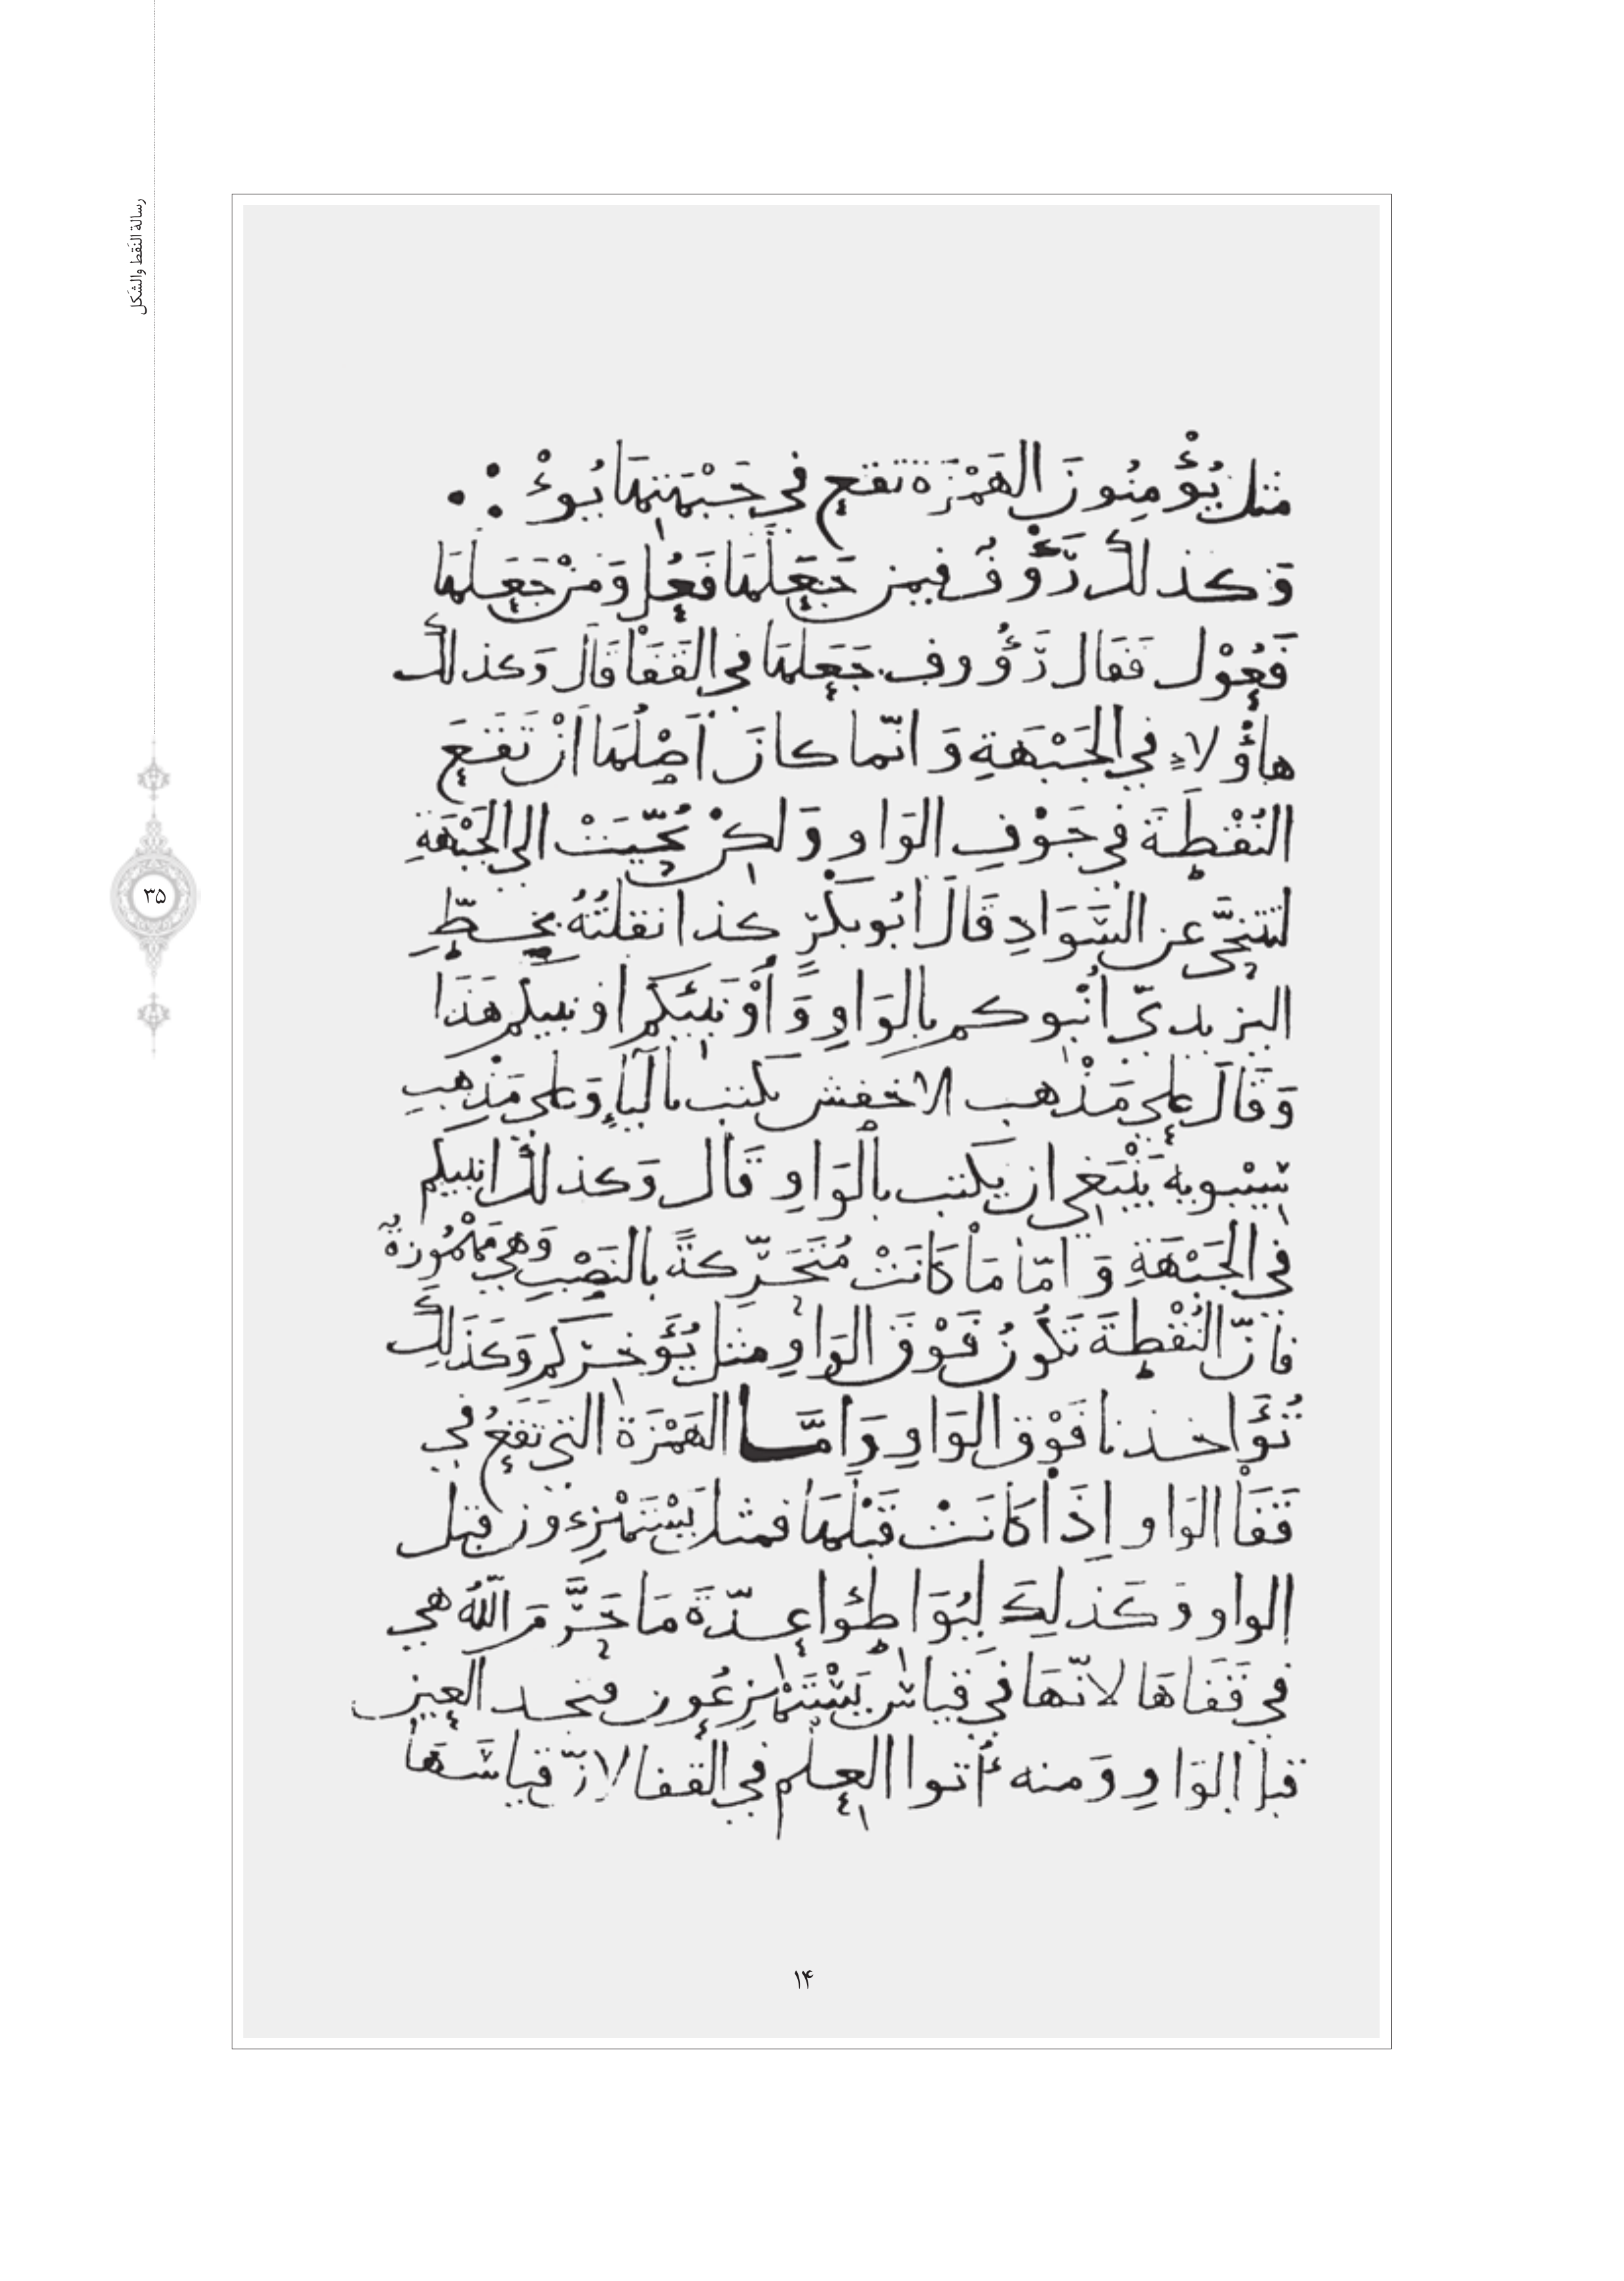 رسالة النَقط والشَكل
۳۵
مثل يُؤْمِنُونَ الهَمْزَة تقع في جَبْهَتِهَا يُوءْ
وَكذلكَ رَءُوفٌ فيمن جَعَلَهَا فَعُل وَمَنْ جَعَلَهَا
فَعُوْل فَقَال رَءُووف جَعَلهَا في القَفَا قَالَ وَكذلكَ
هاؤُلاءِ في الجَبْهَةِ وَانّما كانَ أَصْلُهَا أَنْ تَقَعَ
النُقْطَة في جَوْفِ الوَاو وَلكِنْ نُحِّيَتْ الى الجَبْهَةِ
لتَتَنَحَّى عن السَّوَادِ قَالَ أبُو بَكْرٍ كذا نقلتُهُ بخطِّ
اليزيديّ أنْبوكم بِالوَاوِ وَأَوْ نَبِيّكم او نبيكم هَذَا
وَقَالَ عَلى مَذْهب الاخفش يكتب باليَاءِ وَعَلى مَذهبِ
سيْبويه يَنْبَغي ان يكتب بالوَاوِ قَال وَكذلكَ انبيكم
في الجَبْهَةِ وَامّا مَا كَانَتْ مُتَحَرِّكةً بِالنَصْبِ وَهيَ مَهْمُوزةٌ
فَانّ النُقْطَةَ تَكُونُ فَوْقَ الوَاوِ مثل يُؤَخِّركم وَكَذَلِكَ
تُؤَاخذنا فَوْق الوَاوِ وَأَمَّا الهَمْزَة التي تَقَعُ في
قَفَا الوَاو إِذَا كَانَتْ قَبْلَهَا فمثل يَسْتَهْزِءُونَ قبل
الواو وَكَذلِكَ لِيُوَاطِئُوا عِدّةَ مَا حَرَّمَ اللّهُ هي
في قَفَاهَا لانّهَا في قياس يَسْتَهْزِعُون فتجد العين
قبل الوَاوِ وَمنه أتوا العِلْم في القفا لانّ قياسَهَا
۱۴